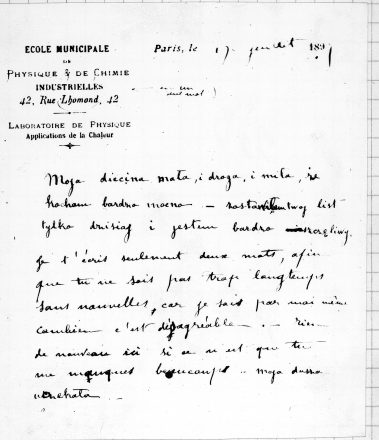 ECOLE MUNICIPALE
DE
PHYSIQUE & DE CHIMIE
INDUSTRIELLES
42, Rue Lhomond, 42
LABORATOIRE DE PHYSIQUE
Applications de la Chaleur
Paris, le 17 juillet 189
Moja dziecina mała, i droga, i miła, że
kocham bardzo mocno — list
tylko dzisiaj i jestem bardzo
Je t'écris seulement deux mots, afin
que tu ne sois pas trop longtemps
sans nouvelles, car je sais par moi même
combien c'est désagréable. — Rien
de nouveau ici si ce n'est que tu
me manques beaucoup. Moja dusza